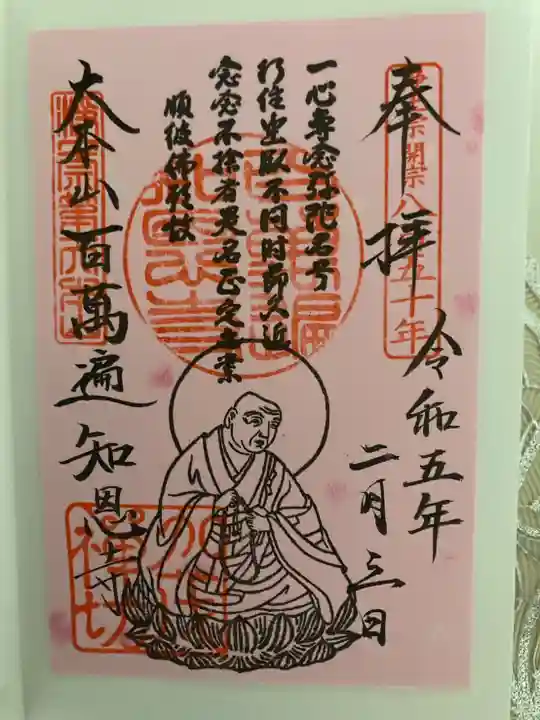 奉拝
浄土宗開宗八百五十年
令和五年
二月三日
一心専念弥陀名号
行住坐臥不問時節久近
念念不捨者是名正定之業
順彼佛願故
大本山百萬遍知恩寺